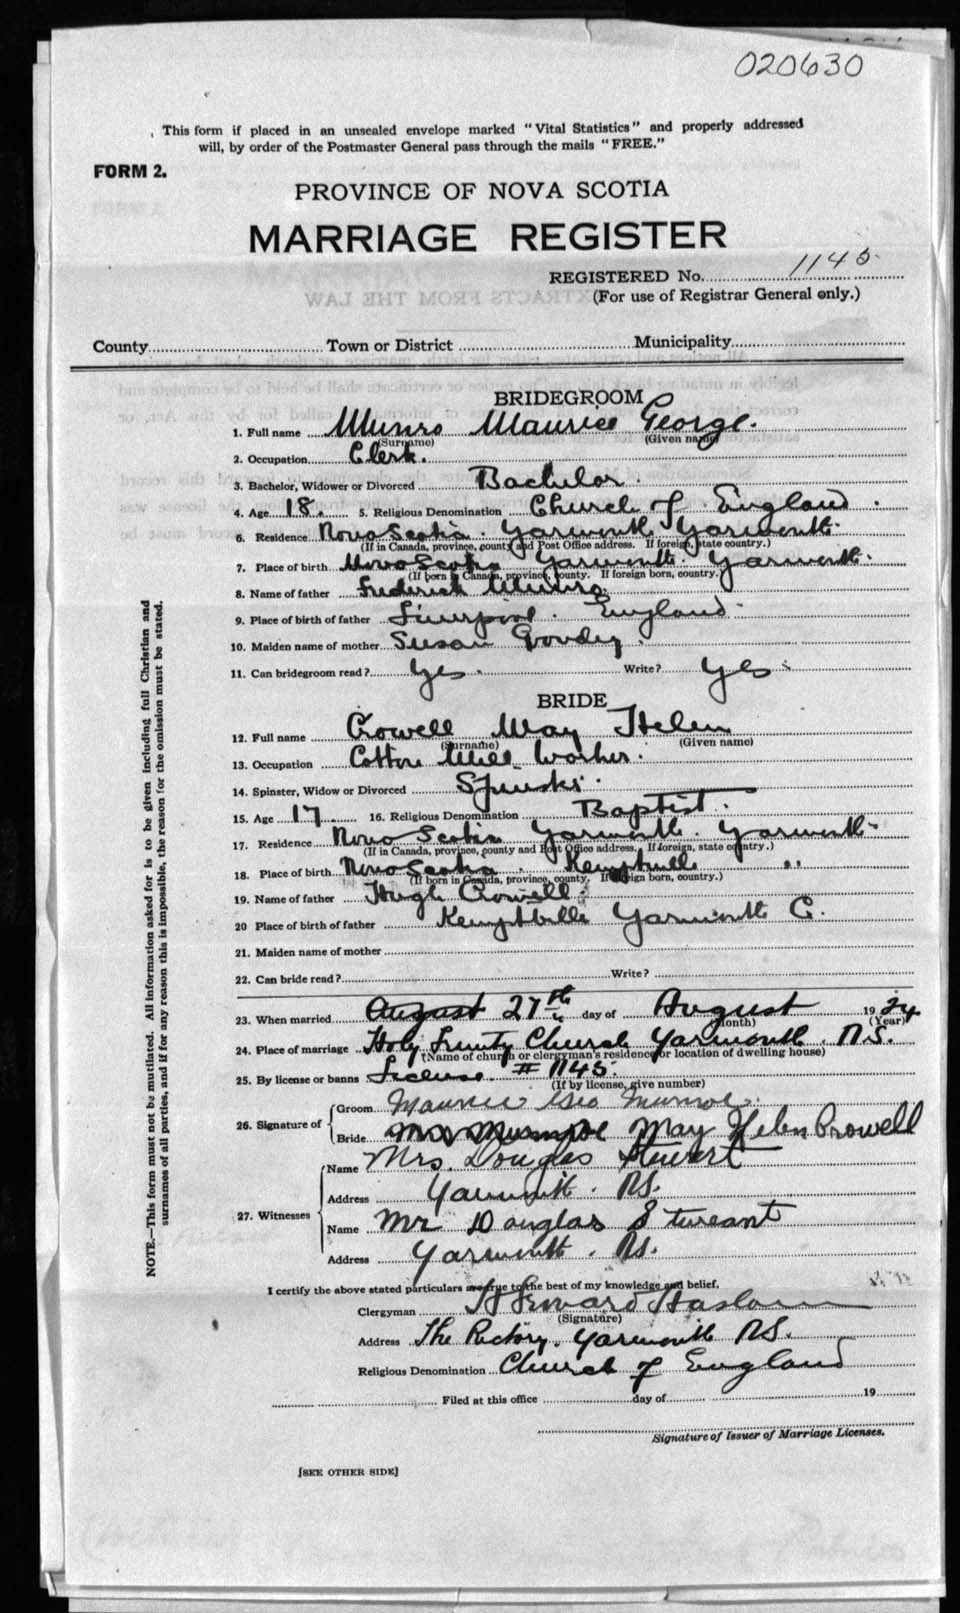 020630
This form if placed in an unsealed envelope marked "Vital Statistics" and properly addressed
will, by order of the Postmaster General pass through the mails "FREE."
FORM 2.
PROVINCE OF NOVA SCOTIA
MARRIAGE REGISTER
REGISTERED No. 1145
(For use of Registrar General only.)
County Town or District Municipality
BRIDEGROOM
1. Full name Munro Maurice George.
(Surname) (Given name)
2. Occupation Clerk.
3. Bachelor, Widower or Divorced Bachelor.
4. Age 18. 5. Religious Denomination Church of England.
6. Residence Nova Scotia. Yarmouth Yarmouth.
(If in Canada, province, county and Post Office address. If foreign, state country.)
7. Place of birth Nova Scotia Yarmouth. Yarmouth.
(If born in Canada, province, county. If foreign born, country.)
8. Name of father Frederick Munro.
9. Place of birth of father Liverpool. England.
10. Maiden name of mother Susan Goudey.
11. Can bridegroom read? Yes. Write? Yes.
BRIDE
12. Full name Crowell May Helen
(Surname) (Given name)
13. Occupation Cotton Mill Worker.
14. Spinster, Widow or Divorced
15. Age 17. 16. Religious Denomination Baptist.
17. Residence Nova Scotia Yarmouth. Yarmouth
(If in Canada, province, county and Post Office address. If foreign, state country.)
18. Place of birth Nova Scotia. Kemptville "
(If born in Canada, province, county. If foreign born, country.)
19. Name of father Hugh Crowell
20 Place of birth of father Kemptville Yarmouth C.
21. Maiden name of mother
22. Can bride read? Write?
23. When married August 27th day of August 1924
(Month) (Year)
24. Place of marriage Holy Trinity Church Yarmouth. N.S.
(Name of church or clergyman's residence or location of dwelling house)
25. By license or banns License. # 1145.
(If by license, give number)
26. Signature of
Groom Maurice Geo Munroe.
Bride Mrs Munroe May Helen Crowell
27. Witnesses
Name Mrs. Douglas Stewert
Address Yarmouth. NS.
Name Mr Douglas Steweart
Address Yarmouth. NS.
I certify the above stated particulars are true to the best of my knowledge and belief.
Clergyman Haslam
(Signature)
Address The Rectory. Yarmouth NS.
Religious Denomination Church of England
Filed at this office day of 19
Signature of Issuer of Marriage Licenses.
[SEE OTHER SIDE]
NOTE.—This form must not be mutilated. All information asked for is to be given including full Christian and
surnames of all parties, and if for any reason this is impossible, the reason for the omission must be stated.